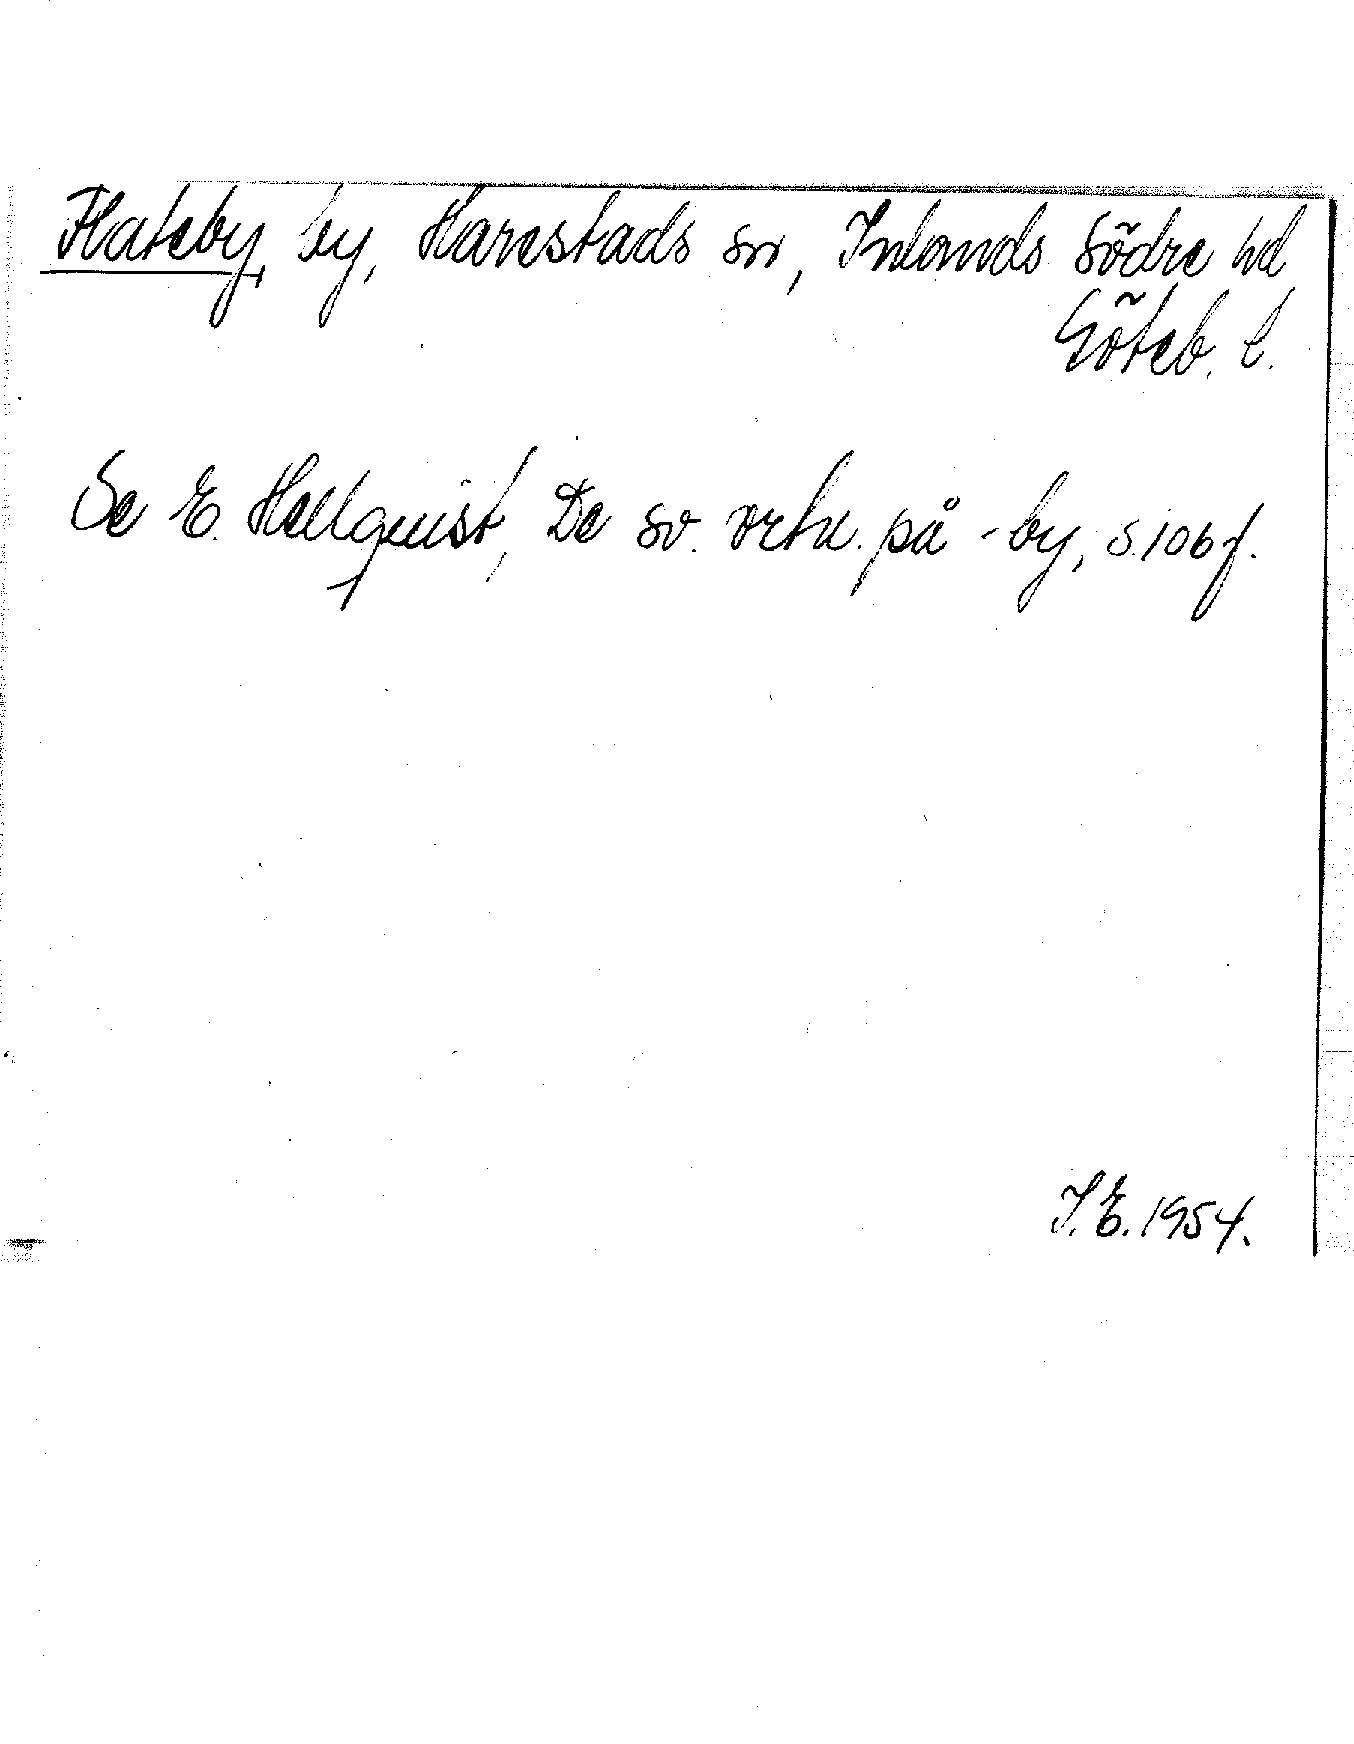 Flateby, by, Harestads sn, Inlands Södre hd
Göteb. l.
Se E. Hellquist, De sv. ortn. på -by, s. 106 f.
I. E. 1954.